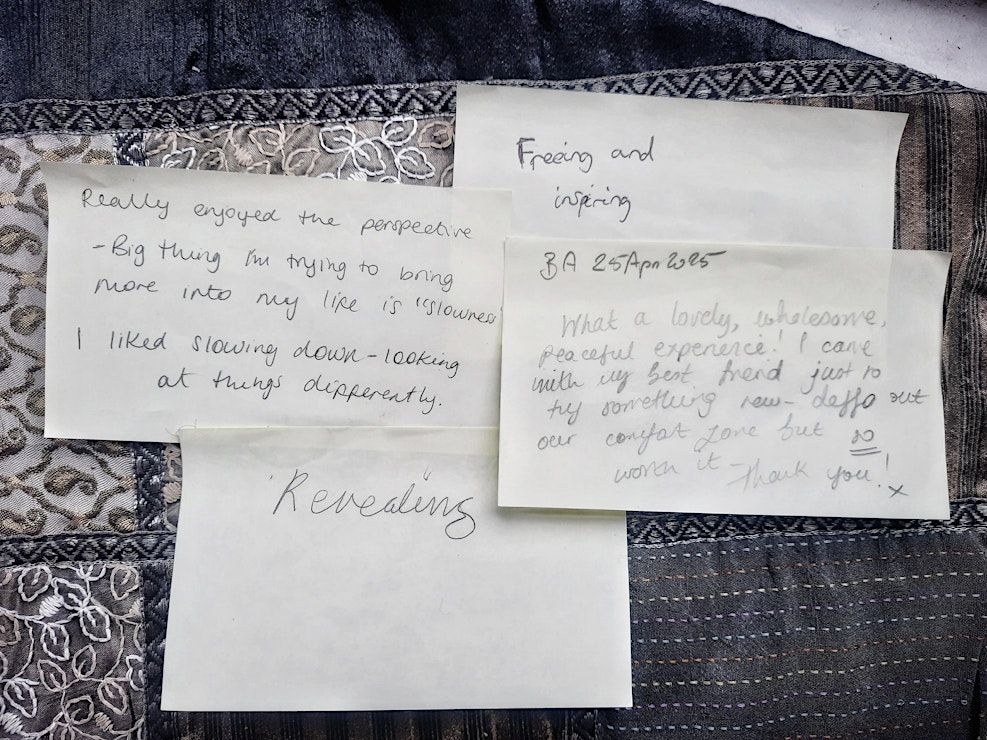 Freeing and
inspiring
Really enjoyed the perspective
- Big thing I'm trying to bring
more into my life is "slowness"
I liked slowing down - looking
at things differently.
BA 25 Apr 2025
What a lovely, wholesome,
peaceful experience! I came
with my best friend just to
try something new - deffo out
our comfort zone but so
worth it - Thank you! x
"Revealing"